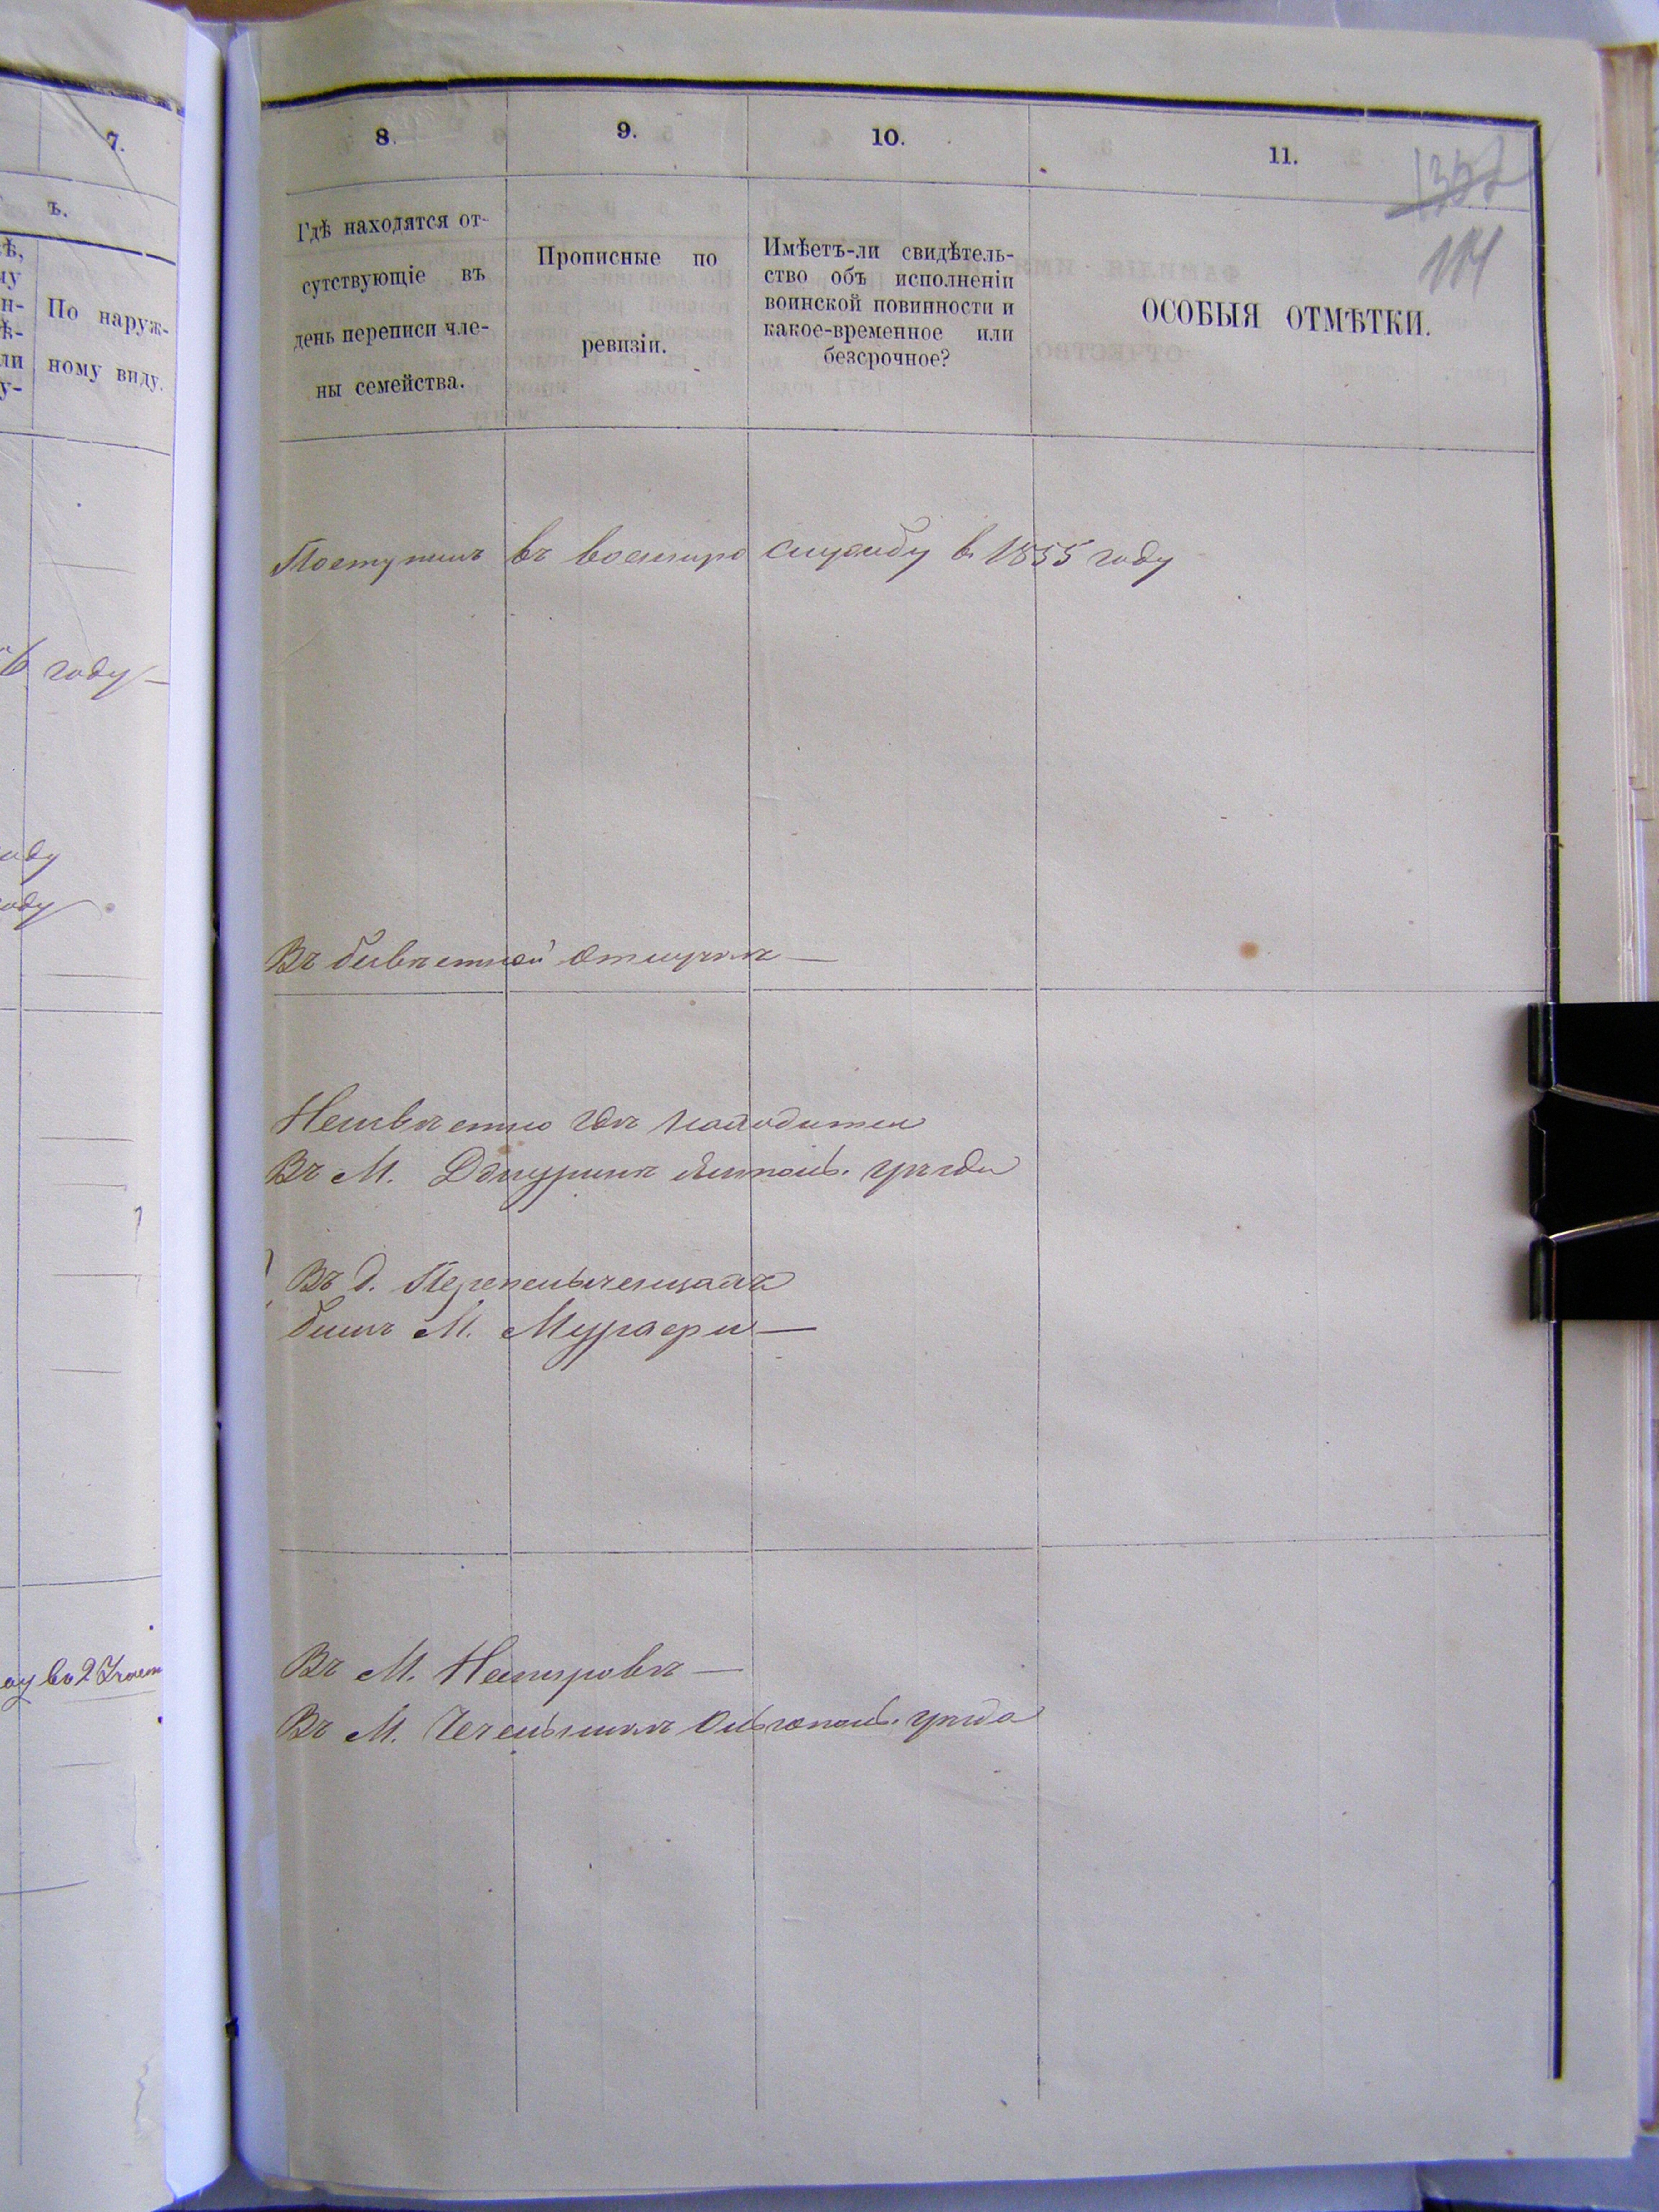 7.
ъ.
По наруж-
ному виду.
году
8.
9.
10.
11.
114
Гдѣ находятся от-
сутствующіе въ
день переписи чле-
ны семейства.
Прописные по
ревизіи.
Имѣетъ-ли свидѣтель-
ство объ исполненіи
воинской повинности и
какое-временное или
безсрочное?
ОСОБЫЯ ОТМѢТКИ.
Поступилъ въ военную службу в. 1855 году
Въ безвѣстной отлучкѣ
Неизвѣстно гдѣ находится
Въ М. Джуринѣ Ямполь. уѣзда
Въ д. Перепельченцахъ
близъ М. Мурафы
Въ М. Немировѣ
Въ М. Чечельникѣ Ольгополь. уѣзда